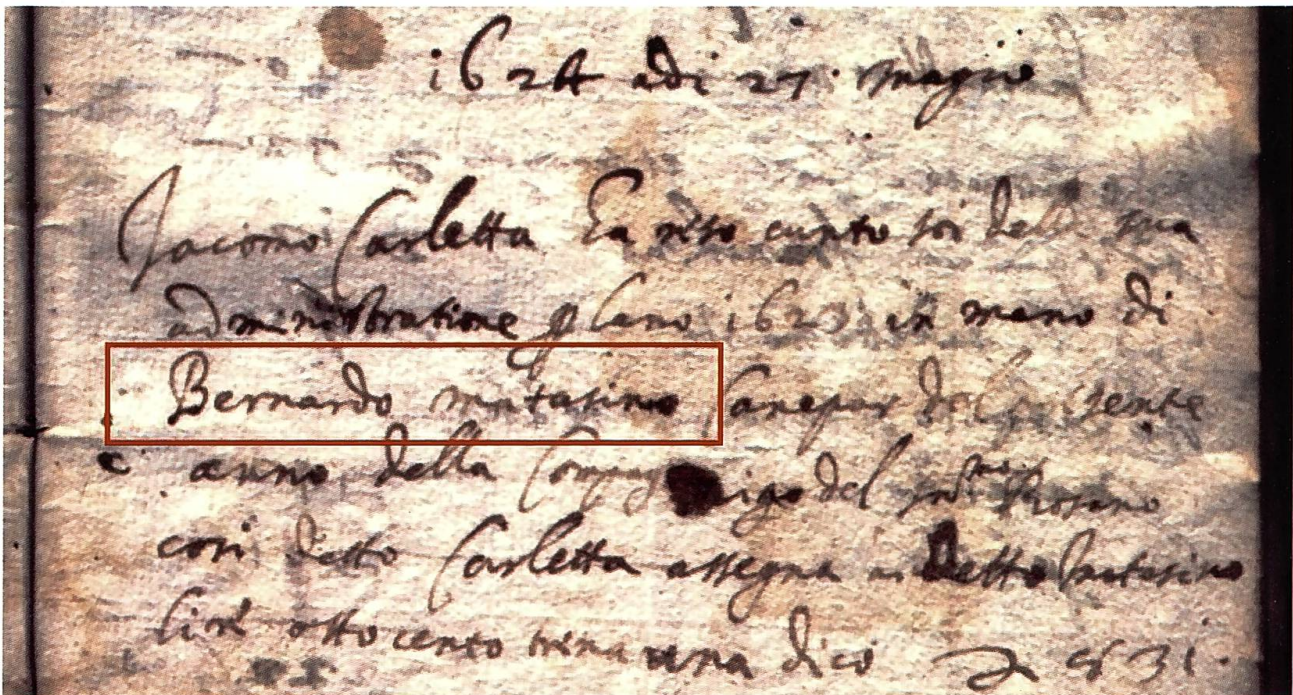 1624 adi 27 magio
Jacomo Carletta Ha reso cunto soi della sua
administratione p lano 1623 in mano di
Bernardo mutasino Canepar del presente
anno della del Rosario
cosi detto Carletta assegna a detto mutasino
lire otto cento trina una dico 831